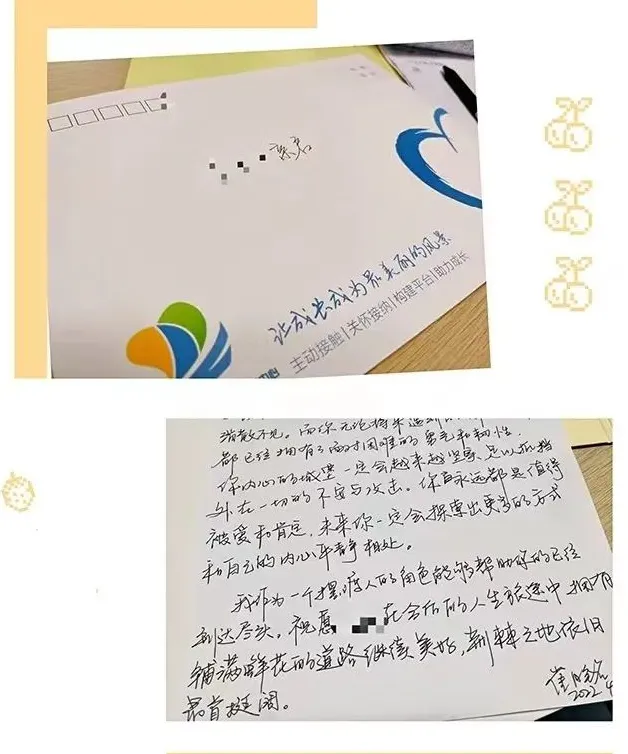 亲启
让成长成为最美丽的风景
主动接触|关怀接纳|构建平台|助力成长
消散不见。而你无论将来遇到
都已经拥有了面对困难的勇气和韧性，
你内心的城堡一定会越来越坚实，足以抵挡
外在一切的不安与攻击。你永远都是值得
被爱和肯定，未来你一定会探索出更多的方式
和自己的内心平静相处。
我作为一个摆渡人的角色能够帮助你的已经
到达尽头。祝愿 在今后的人生旅途中拥有
铺满鲜花的道路继续美好，荆棘之地依旧
昂首挺阔。
崔
2022.4